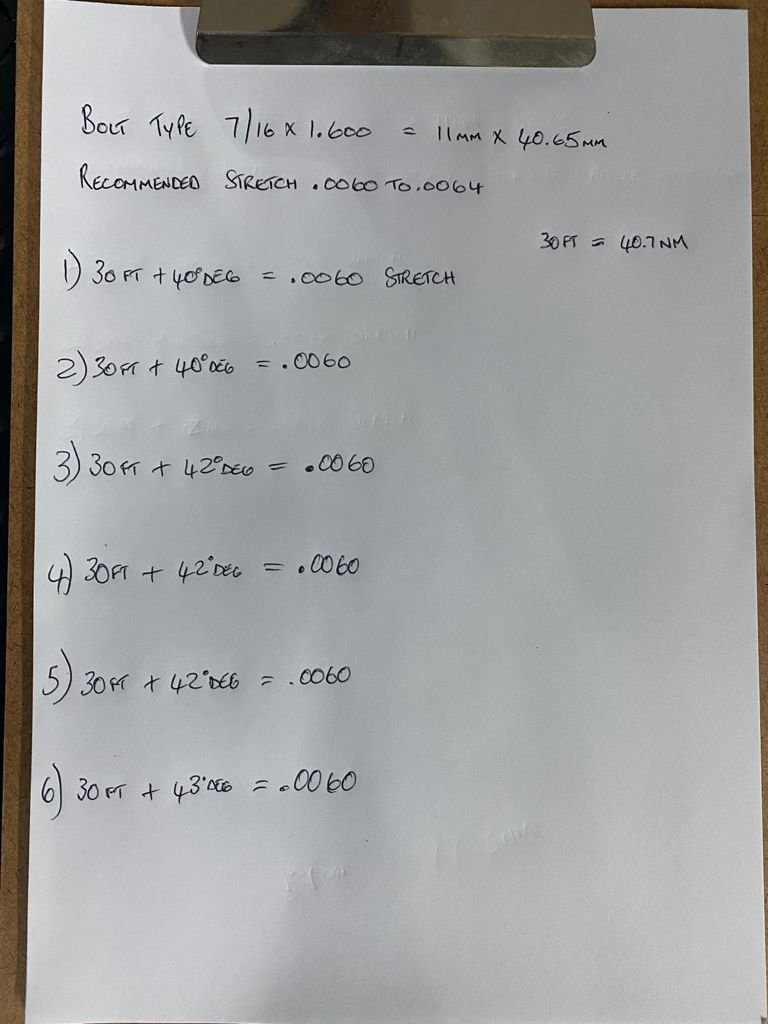 BOLT TYPE 7/16 X 1.600 = 11MM X 40.65MM
RECOMMENDED STRETCH .0060 TO .0064
30FT = 40.7NM
1) 30FT + 40°DEG = .0060 STRETCH
2) 30FT + 40°DEG = .0060
3) 30FT + 42°DEG = .0060
4) 30FT + 42°DEG = .0060
5) 30FT + 42°DEG = .0060
6) 30FT + 43°DEG = .0060